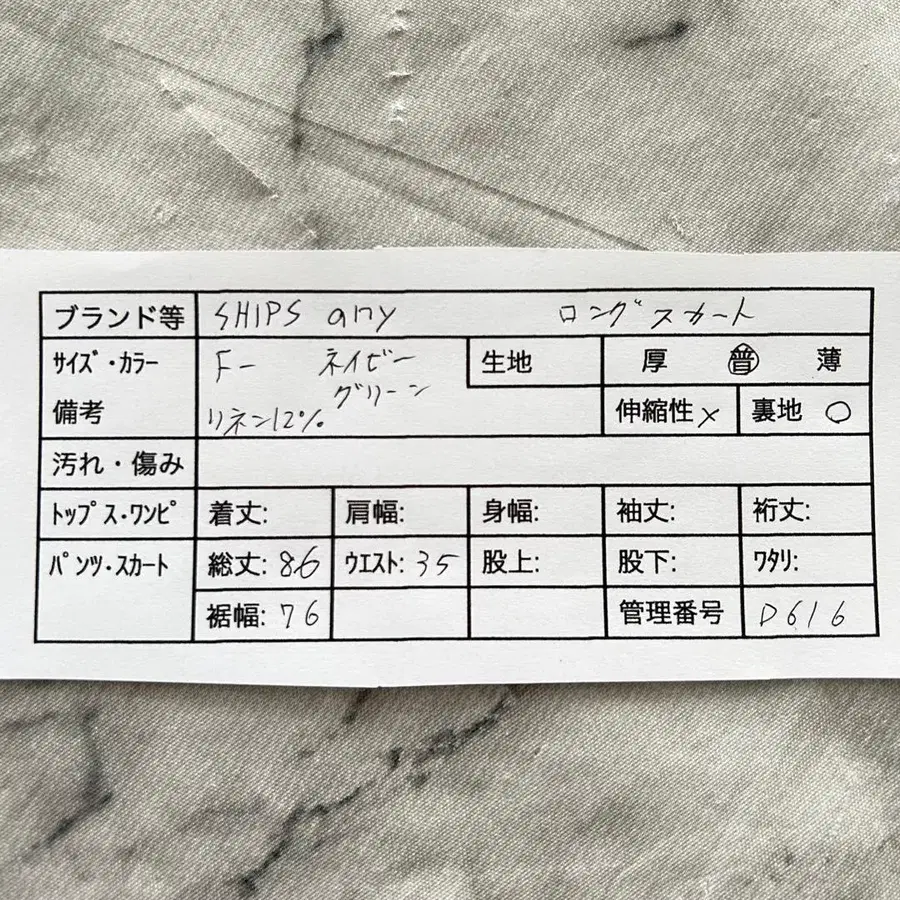 ブランド等 SHIPS any ロングスカート
サイズ・カラー F- ネイビー 生地 厚 普 薄
グリーン
備考 リネン12% 伸縮性× 裏地 ○
汚れ・傷み
トップス・ワンピ 着丈: 肩幅: 身幅: 袖丈: 裄丈:
パンツ・スカート 総丈: 86 ウエスト: 35 股上: 股下: ワタリ:
裾幅: 76 管理番号 D616